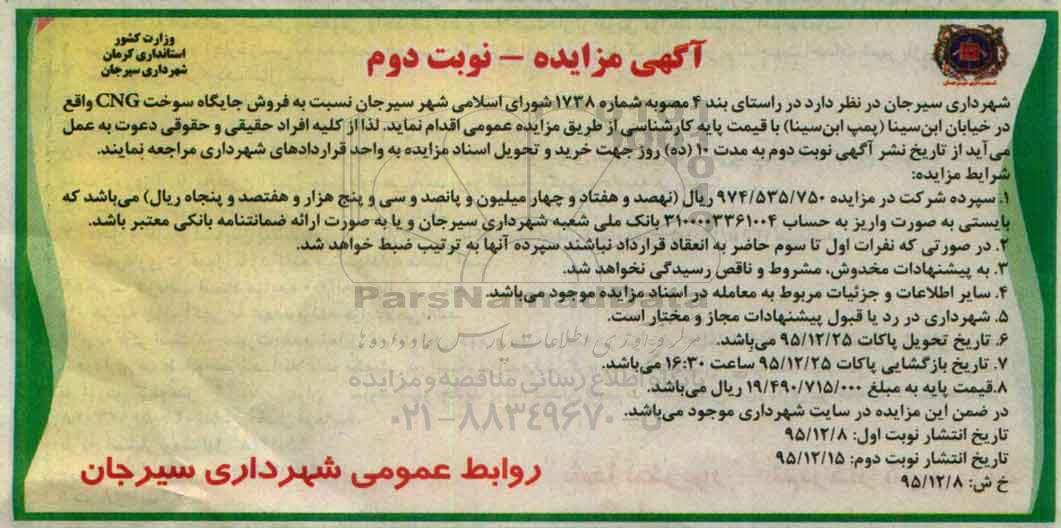 وزارت کشور
استانداری کرمان
شهرداری سیرجان
آگهی مزایده – نوبت دوم
شهرداری سیرجان در نظر دارد در راستای بند ۴ مصوبه شماره ۱۷۳۸ شورای اسلامی شهر سیرجان نسبت به فروش جایگاه سوخت CNG واقع
در خیابان ابن‌سینا (پمپ ابن‌سینا) با قیمت پایه کارشناسی از طریق مزایده عمومی اقدام نماید. لذا از کلیه افراد حقیقی و حقوقی دعوت به عمل
می‌آید از تاریخ نشر آگهی نوبت دوم به مدت ۱۰ (ده) روز جهت خرید و تحویل اسناد مزایده به واحد قراردادهای شهرداری مراجعه نمایند.
شرایط مزایده:
۱. سپرده شرکت در مزایده ۹۷۴/۵۳۵/۷۵۰ ریال (نهصد و هفتاد و چهار میلیون و پانصد و سی و پنج هزار و هفتصد و پنجاه ریال) می‌باشد که
بایستی به صورت واریز به حساب ۳۱۰۰۰۰۳۳۶۱۰۰۴ بانک ملی شعبه شهرداری سیرجان و یا به صورت ارائه ضمانتنامه بانکی معتبر باشد.
۲. در صورتی که نفرات اول تا سوم حاضر به انعقاد قرارداد نباشند سپرده آنها به ترتیب ضبط خواهد شد.
۳. به پیشنهادات مخدوش، مشروط و ناقص رسیدگی نخواهد شد.
۴. سایر اطلاعات و جزئیات مربوط به معامله در اسناد مزایده موجود می‌باشد.
۵. شهرداری در رد یا قبول پیشنهادات مجاز و مختار است.
۶. تاریخ تحویل پاکات ۹۵/۱۲/۲۵ می‌باشد.
۷. تاریخ بازگشایی پاکات ۹۵/۱۲/۲۵ ساعت ۱۶:۳۰ می‌باشد.
۸.قیمت پایه به مبلغ ۱۹/۴۹۰/۷۱۵/۰۰۰ ریال می‌باشد.
در ضمن این مزایده در سایت شهرداری موجود می‌باشد.
تاریخ انتشار نوبت اول: ۹۵/۱۲/۸
تاریخ انتشار نوبت دوم: ۹۵/۱۲/۱۵
خ ش: ۹۵/۱۲/۸
روابط عمومی شهرداری سیرجان
ParsNamadData
اطلاع رسانی مناقصه و مزایده
۰۲۱-۸۸۳۴۹۶۷۰